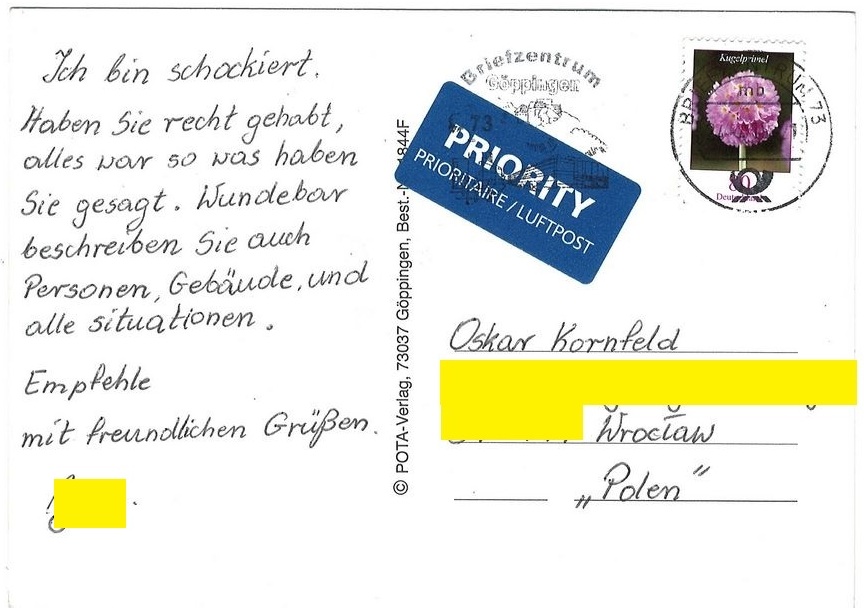 Ich bin schockiert.
Haben Sie recht gehabt,
alles war so was haben
Sie gesagt. Wundebar
beschreiben Sie auch
Personen, Gebäude, und
alle situationen.
Empfehle
mit freundlichen Grüßen.
© POTA-Verlag, 73037 Göppingen, Best.-
1844F
Briefzentrum
Göppingen
73
PRIORITY
PRIORITAIRE / LUFTPOST
Kugelprimel
73
mb
80
Oskar Kornfeld
Wrocław
„Polen”